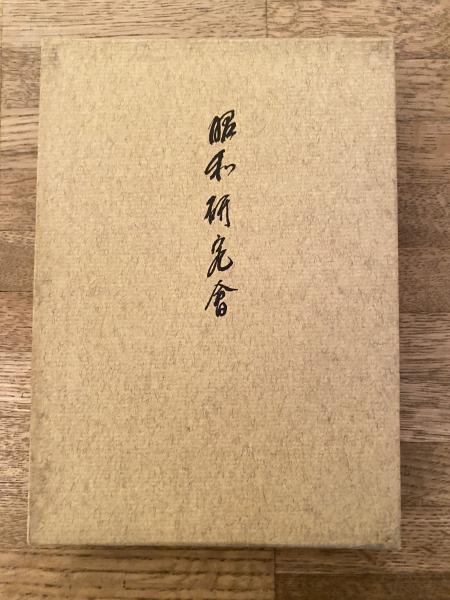 昭和研究會